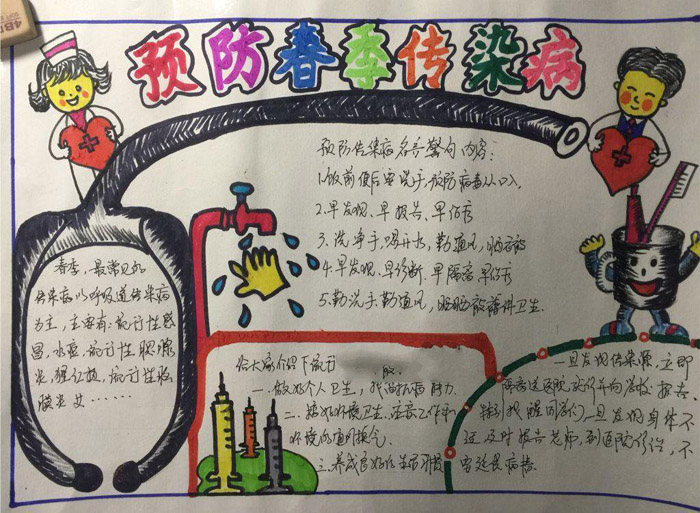 预防春季传染病
预防传染病名言警句内容:
1.饭前便后要洗手,预防病毒从口入
2.早发现、早报告、早治疗
3.洗净手、喝开水,勤通风,晒衣被
4.早发现、早诊断、早隔离、早治疗
5.勤洗手、勤通风,晒晒衣被讲卫生。
春季,最常见的
传染病以呼吸道传染病
为主,主要有:流行性感
冒,水痘,流行性腮腺
炎,猩红热,流行性脑
膜炎
给大家介绍下流行
一、做好个人卫生,
二、搞好环境卫生,注意工作和
环境的通风换气
三、养成良好的生活习惯
一旦发现传染源,立即
隔离送医院就诊并向学校报告
特别提醒同学们一旦发现身体不
适及时报告老师,到医院诊治,不
要延误病情